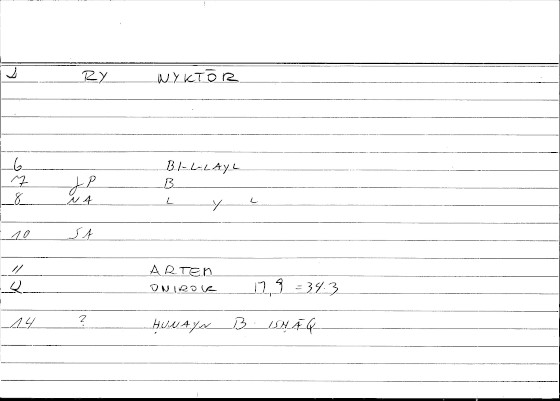 RY NYKTŌR
6 BI-L-LAYL
7 JP B
8 NA L Y L
10 SA
11 ARTEM
ONIROK 17,9 = 34.3
14 ? ḤUNAYN B. ISḤĀQ